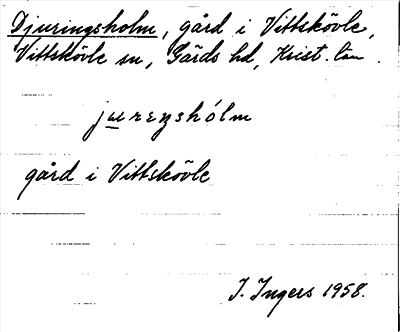 Djuringsholm, gård i Vittskövle,
Vittskövle sn, Gärds hd, Krist. län.
jureŋshólm
gård i Vittskövle
I. Ingers 1958.